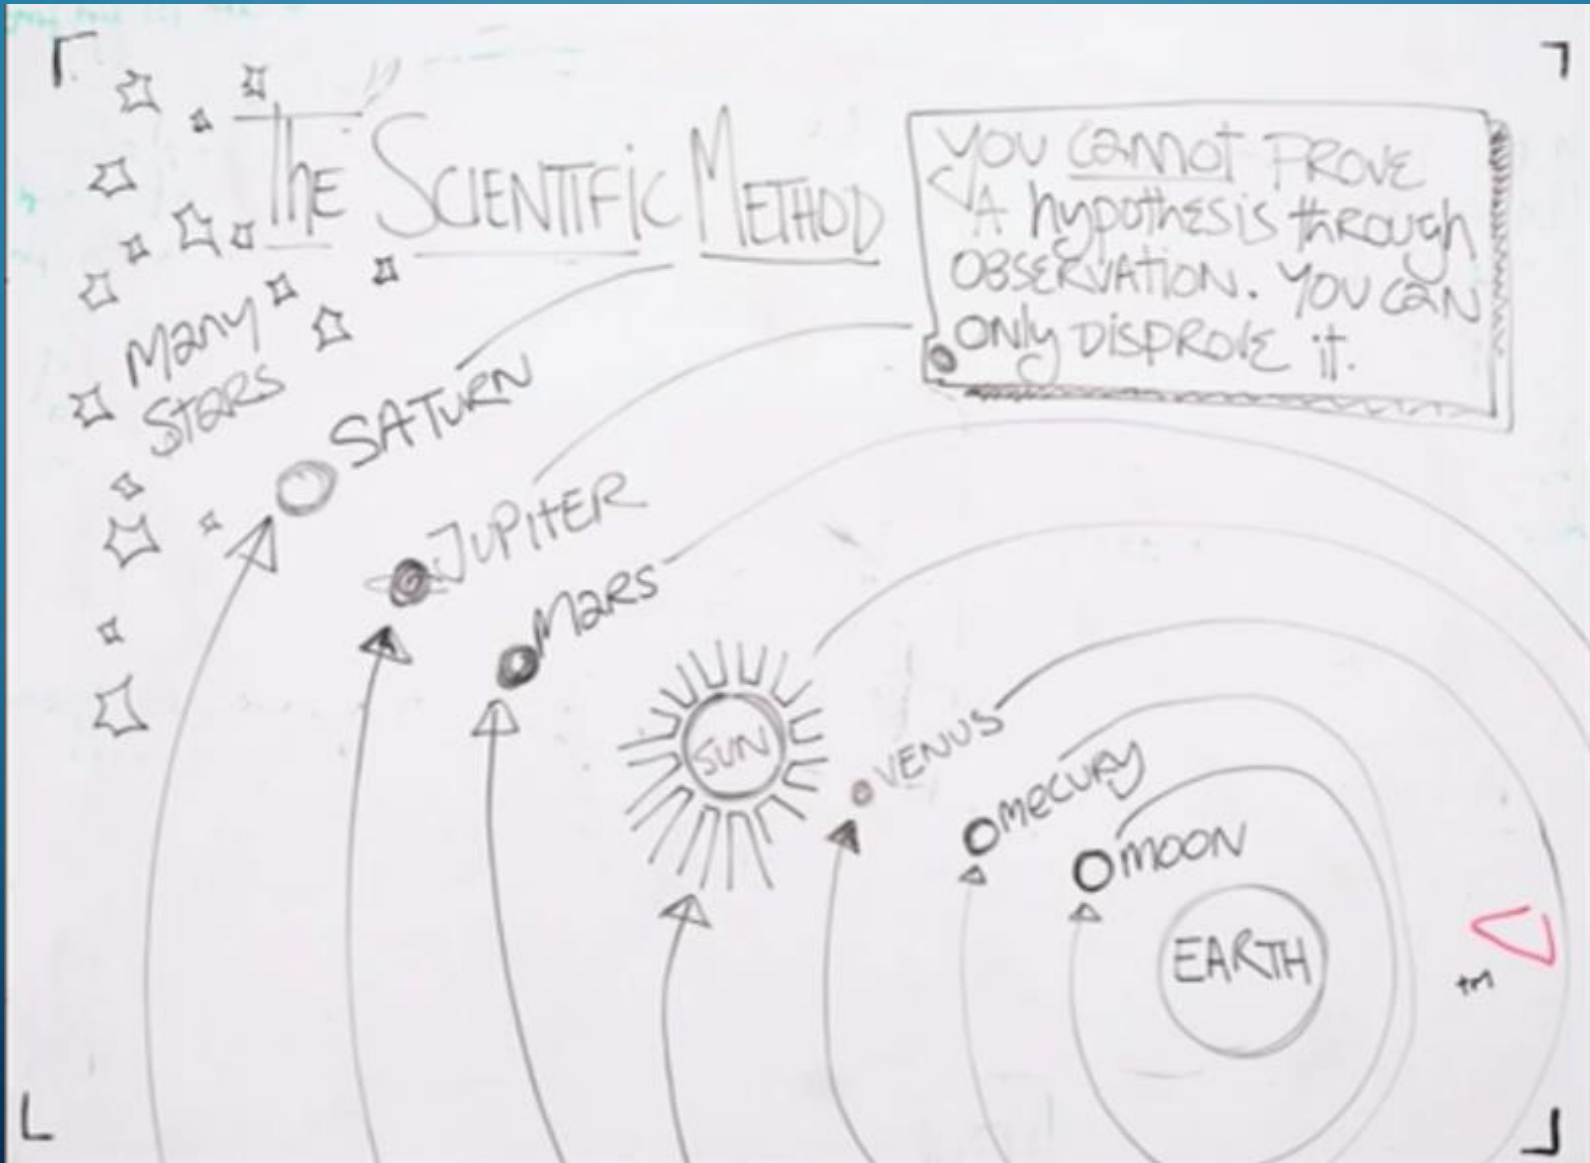 The Scientific Method
You cannot prove
A hypothesis through
observation. You can
only disprove it.
Many
Stars
SATURN
JUPITER
Mars
SUN
VENUS
mecury
moon
EARTH
tm